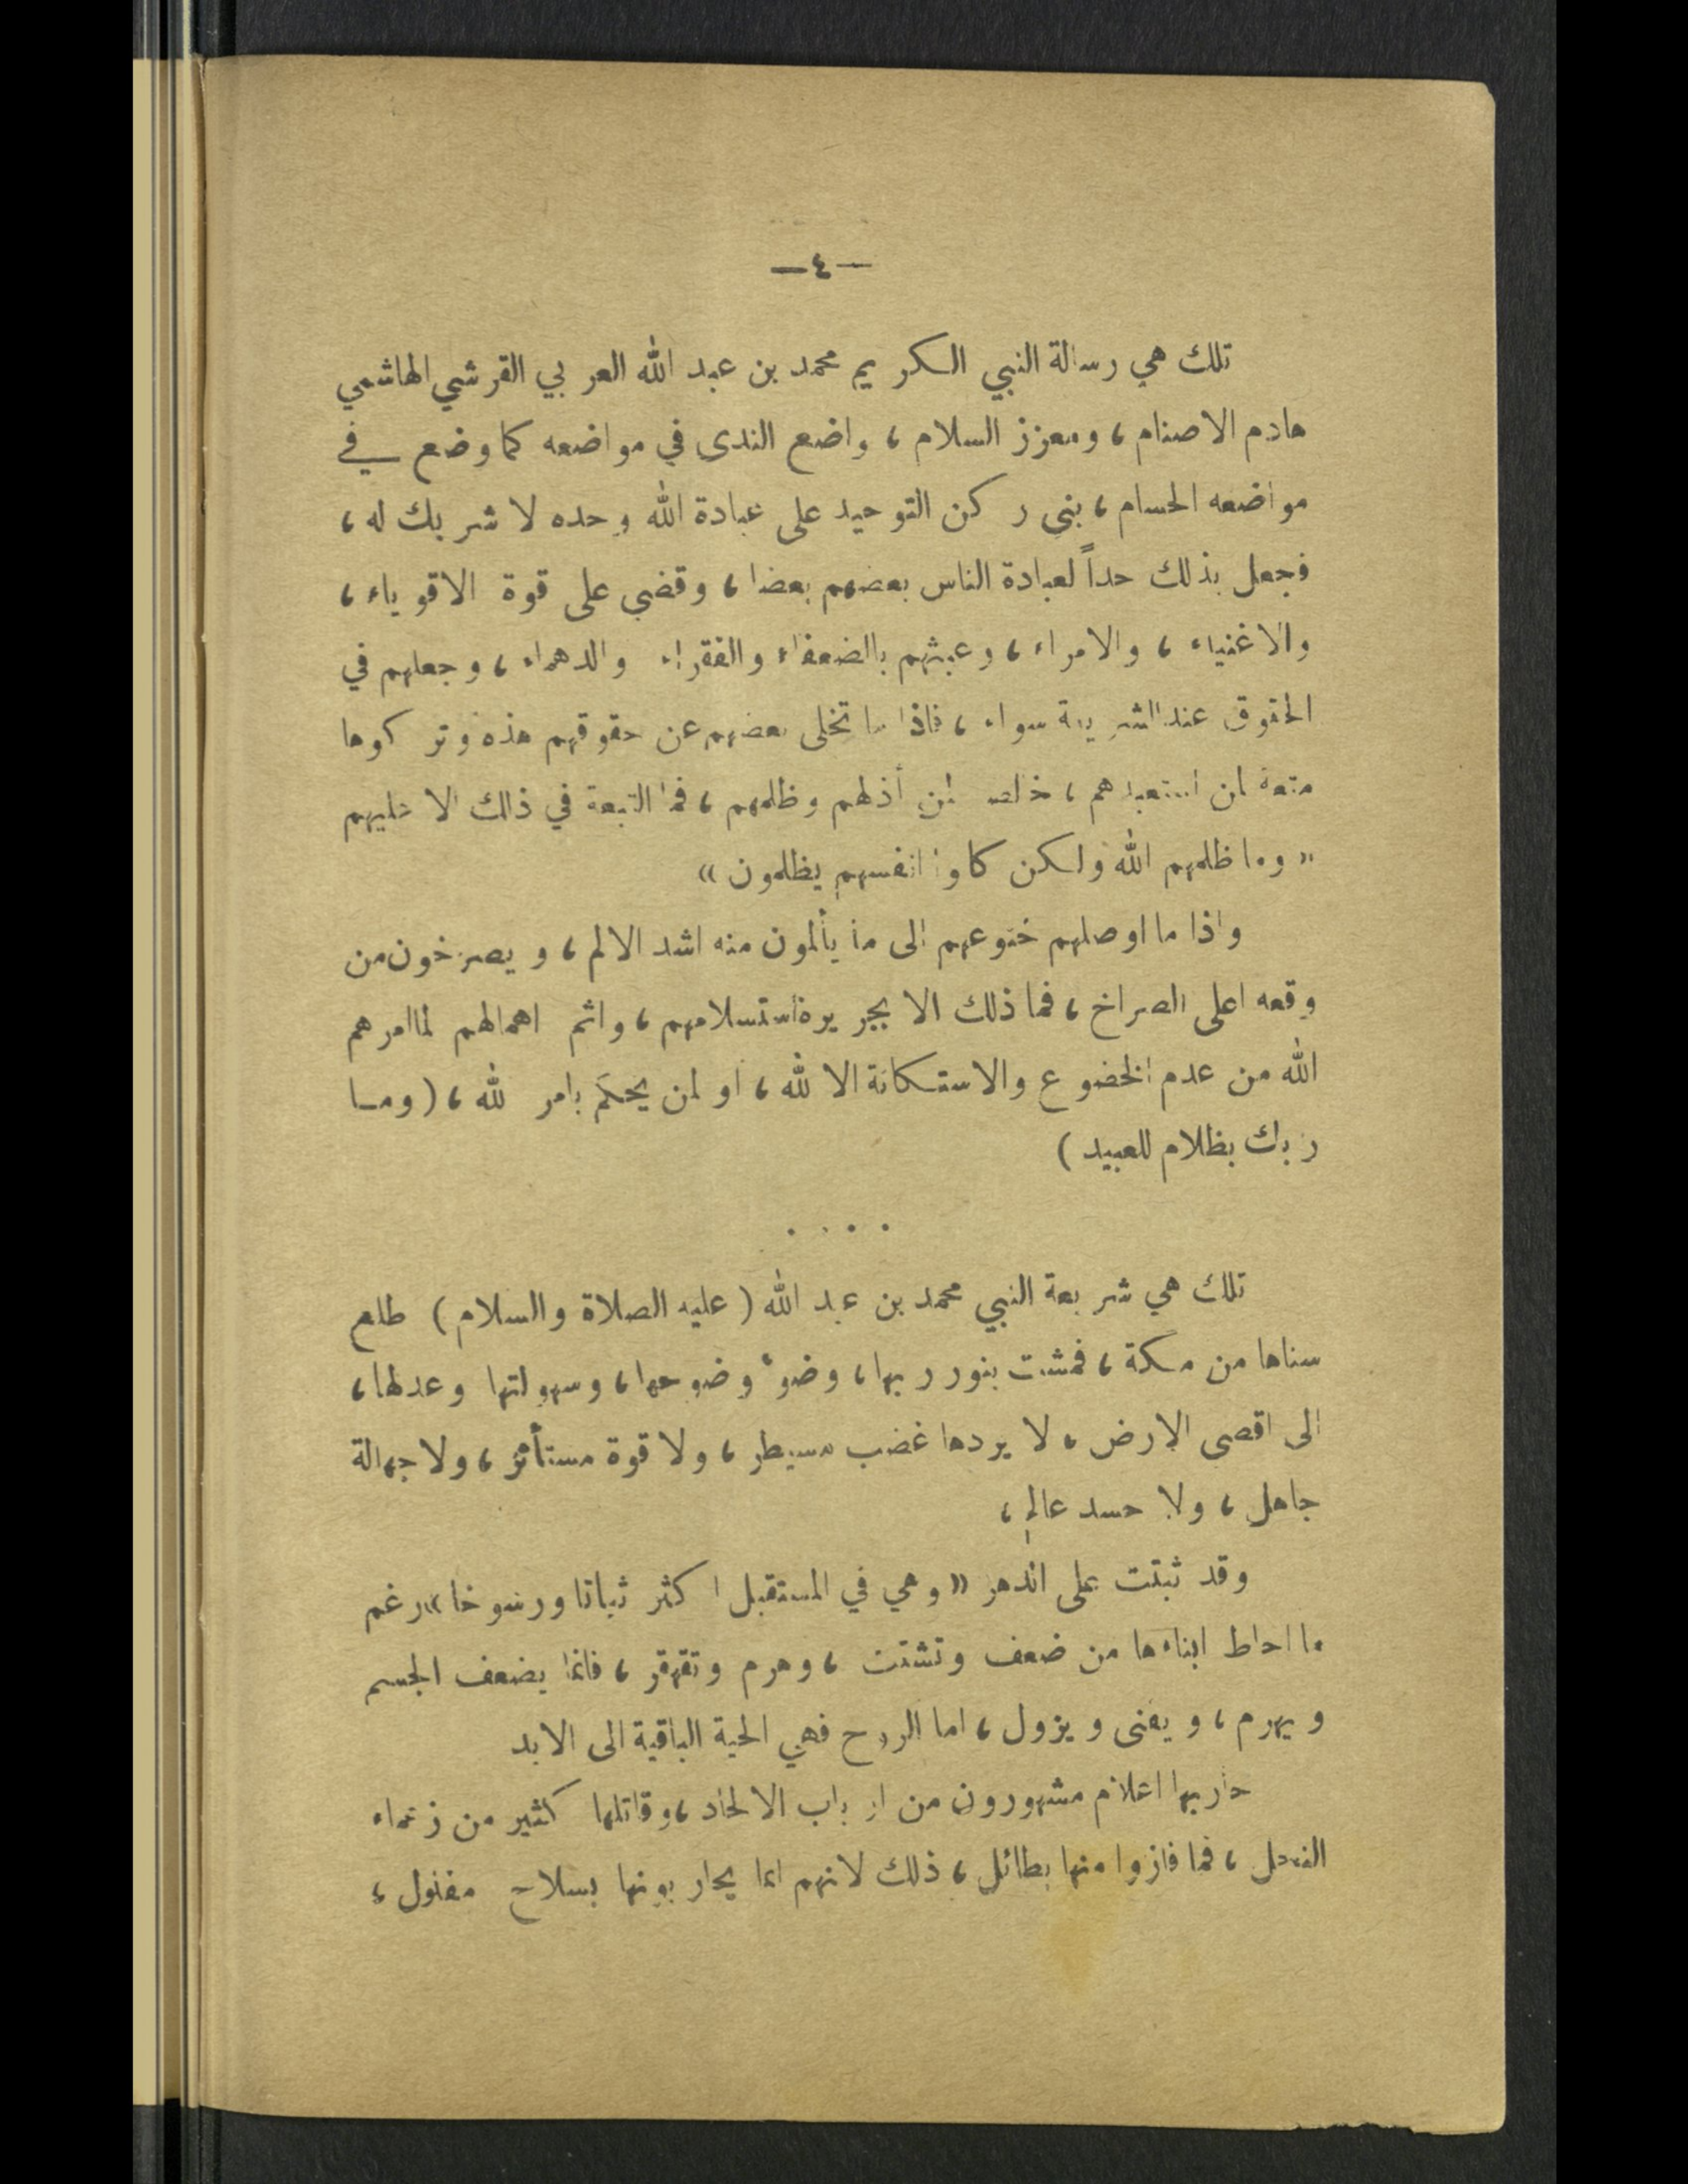 —٤—
تلك هي رسالة النبي الكريم محمد بن عبد الله العربي القرشي الهاشمي
هادم الاصنام، ومعزز السلام، واضع الندى في مواضعه كما وضع في
مواضعه الحسام، بنى ركن التوحيد على عبادة الله وحده لا شريك له،
فجعل بذلك حداً لعبادة الناس بعضهم بعضا، وقضى على قوة الاقوياء،
والاغنياء، والامراء، وعبثهم بالضعفاء والفقراء والدهماء، وجعلهم في
الحقوق عند الشريعة سواء، فاذا ما تخلى بعضهم عن حقوقهم هذه وتركوها
متعة لمن استعبدهم، لمن أذلهم وظلمهم، فما التبعة في ذلك الا عليهم
«وما ظلمهم الله ولكن كانوا انفسهم يظلمون»
واذا ما اوصلهم خنوعهم الى ما يألمون منه اشد الالم، ويصرخون من
وقعه اعلى الصراخ، فما ذلك الا بجريرة استسلامهم، واثم اهمالهم لما امرهم
الله من عدم الخضوع والاستكانة الا لله، او لمن يحكم بامر الله، (وما
ربك بظلام للعبيد)
....
تلك هي شريعة النبي محمد بن عبد الله (عليه الصلاة والسلام) طلع
سناها من مكة، فمشت بنور ربها، وضوء وضوحها، وسهولتها وعدلها،
الى اقصى الارض، لا يردها غضب مسيطر، ولا قوة مستأثر، ولا جهالة
جاهل، ولا حسد عالم،
وقد ثبتت على الدهر «وهي في المستقبل اكثر ثباتا ورسوخا» رغم
ما احاط ابناءها من ضعف وتشتت، وهرم وتقهقر، فانما يضعف الجسم
ويهرم، ويفنى ويزول، اما الروح فهي الحية الباقية الى الابد
حاربها اعلام مشهورون من ارباب الالحاد، وقاتلها كثير من زعماء
النحل، فما فازوا منها بطائل، ذلك لانهم انما يحاربونها بسلاح مفلول،